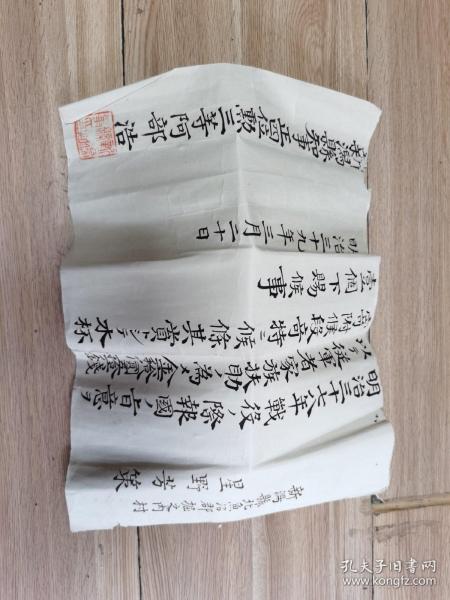 新潟縣北魚沼郡堀之内村
星野芳策
明治三十七八年戰役ノ際報國ノ旨意ヲ
以テ從軍者家族扶助ノ為メ金拾
寄附候段奇特ニ候條其賞トシテ木杯
壹個下賜候事
明治三十九年三月二十日
新潟縣知事正四位勲三等阿部浩
孔夫子旧书网
www.kongfz.com